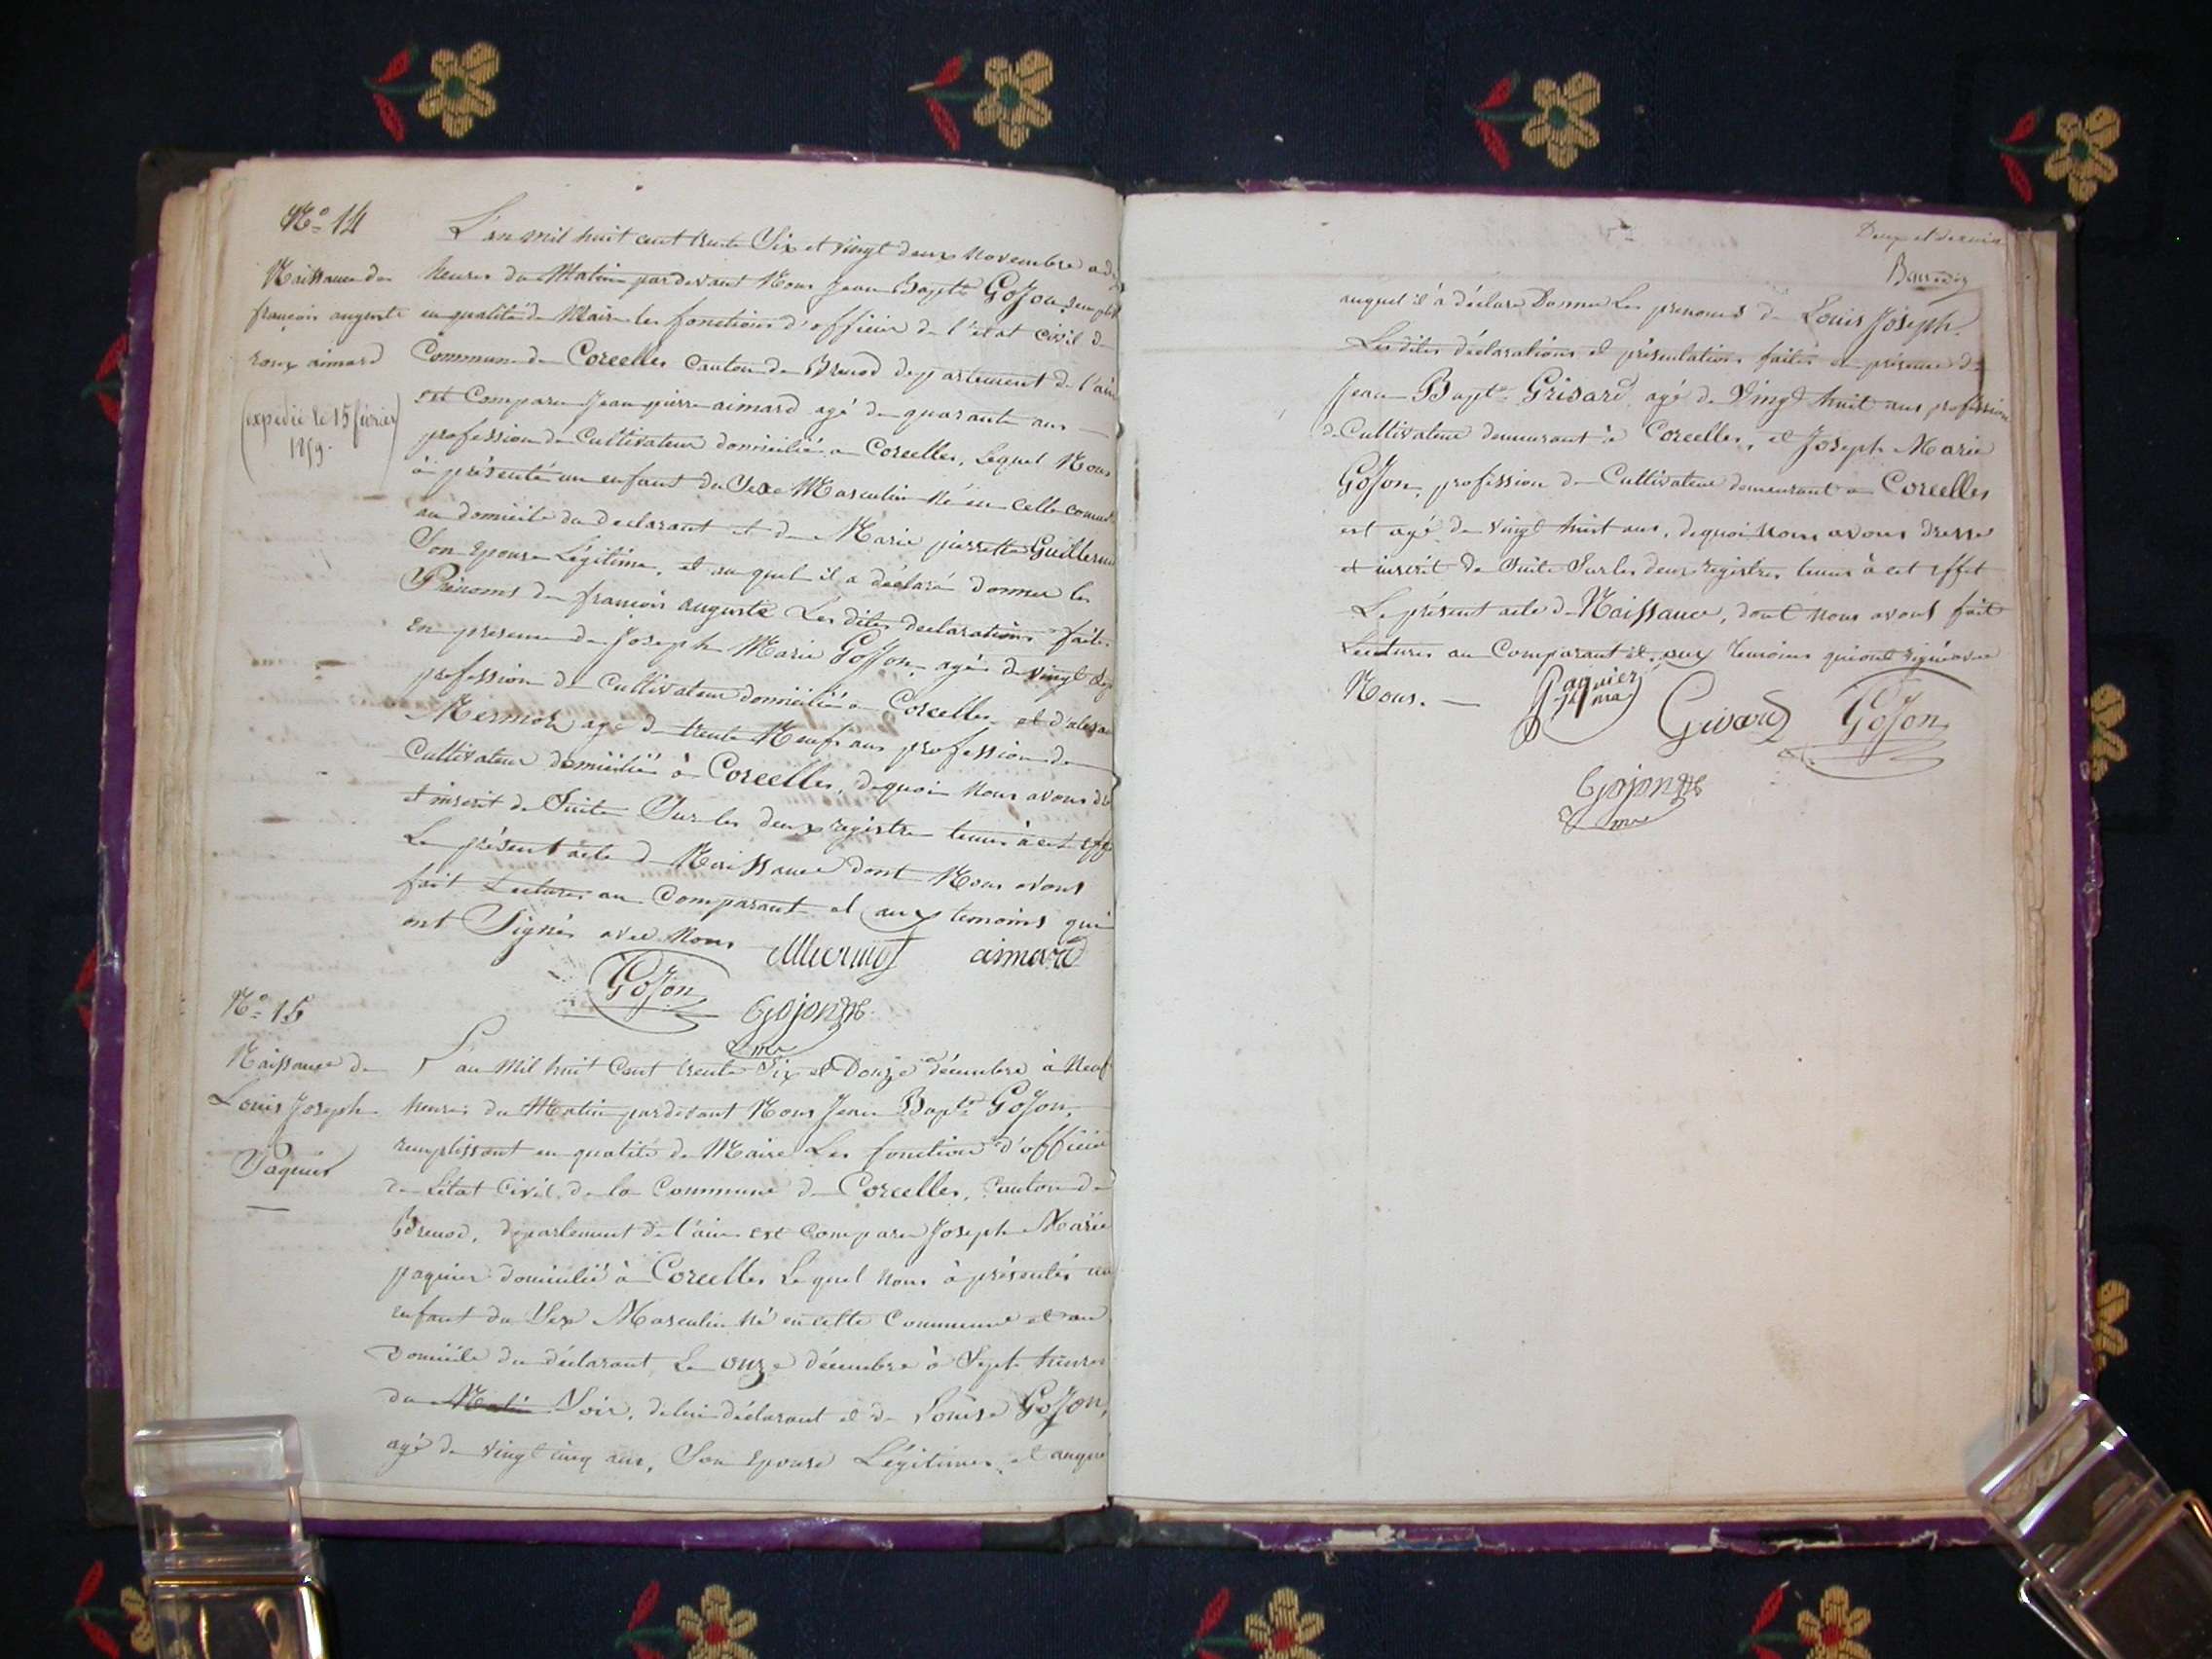 N° 14
Naissance de
françois auguste
roux aimard
(expédié le 15 février
1859.)
L'an mil huit cent trente Six et vingt deux novembre a
heures du Matin pardevant Nous Jean Bapte Gojon
en qualité de Maire les fonctions d'officier de l'état civil de
Commune de Corcelles Canton de Brenod departement de l'ain
est Comparu Jean pierre aimard agé de quarante ans
profession de Cultivateur domicilié a Corcelles, Lequel Nous
à présenté un enfant du Sexe Masculin né en cette
au domicile du declarant et de Marie pierrette
Son Epouse Légitime, et au quel il a déclaré donner les
Prénoms de françois auguste Les dites declarations faites
En presence de Joseph Marie Gojon agé de vingt
profession de Cultivateur domicilié a Corcelles et
Mermoz agé de trente Neuf ans profession de
Cultivateur domicilié à Corcelles, dequoi Nous avons
et inscrit de Suite Sur les deux registres tenus à cet
Le présent acte de Naissance dont Nous avons
fait Lectures au Comparant et aux temoins qui
ont Signés avec Nous
Mermoz aimard
Gojon
Gojon
me
N° 15
Naissance de
Louis Joseph
Paquier
L'an mil huit Cent trente Six et Douze décembre à Neuf
heures du Matin pardevant Nous Jean Bapte Gojon,
remplissant en qualité de Maire Les fonction d'officier
de L'état Civil de la Commune de Corcelles, Canton de
Brenod, departement de l'ain est Comparu Joseph Marie
paquier domicilié à Corcelles Lequel nous à présentés un
enfant du Sexe Masculin né en cette Commune et au
domicile du déclarant, Le onze décembre à Sept heures
du Matin Soir, de lui déclarant et de Louise Gojon,
agé de vingt cinq ans, Son Epouse Légitimes, et auquel
auquel il à déclaré Donner Les prenoms de Louis Joseph.
Les dites déclarations et présentations faites en présence de
Jean Bapte Grisard, agé de Vingt huit ans profession
de Cultivateur demeurant à Corcelles, et Joseph Marie
Gojon, profession de Cultivateur demeurant a Corcelles
est agé de vingt huit ans, dequoi nous avons dressé
et inscrit de Suite Sur les deux registres tenus à cet effet
Le présent acte de Naissance, dont nous avons fait
Lectures au Comparant et aux temoins qui ont signé avec
Nous.
Paquier
Grisard Gojon
Gojon
me